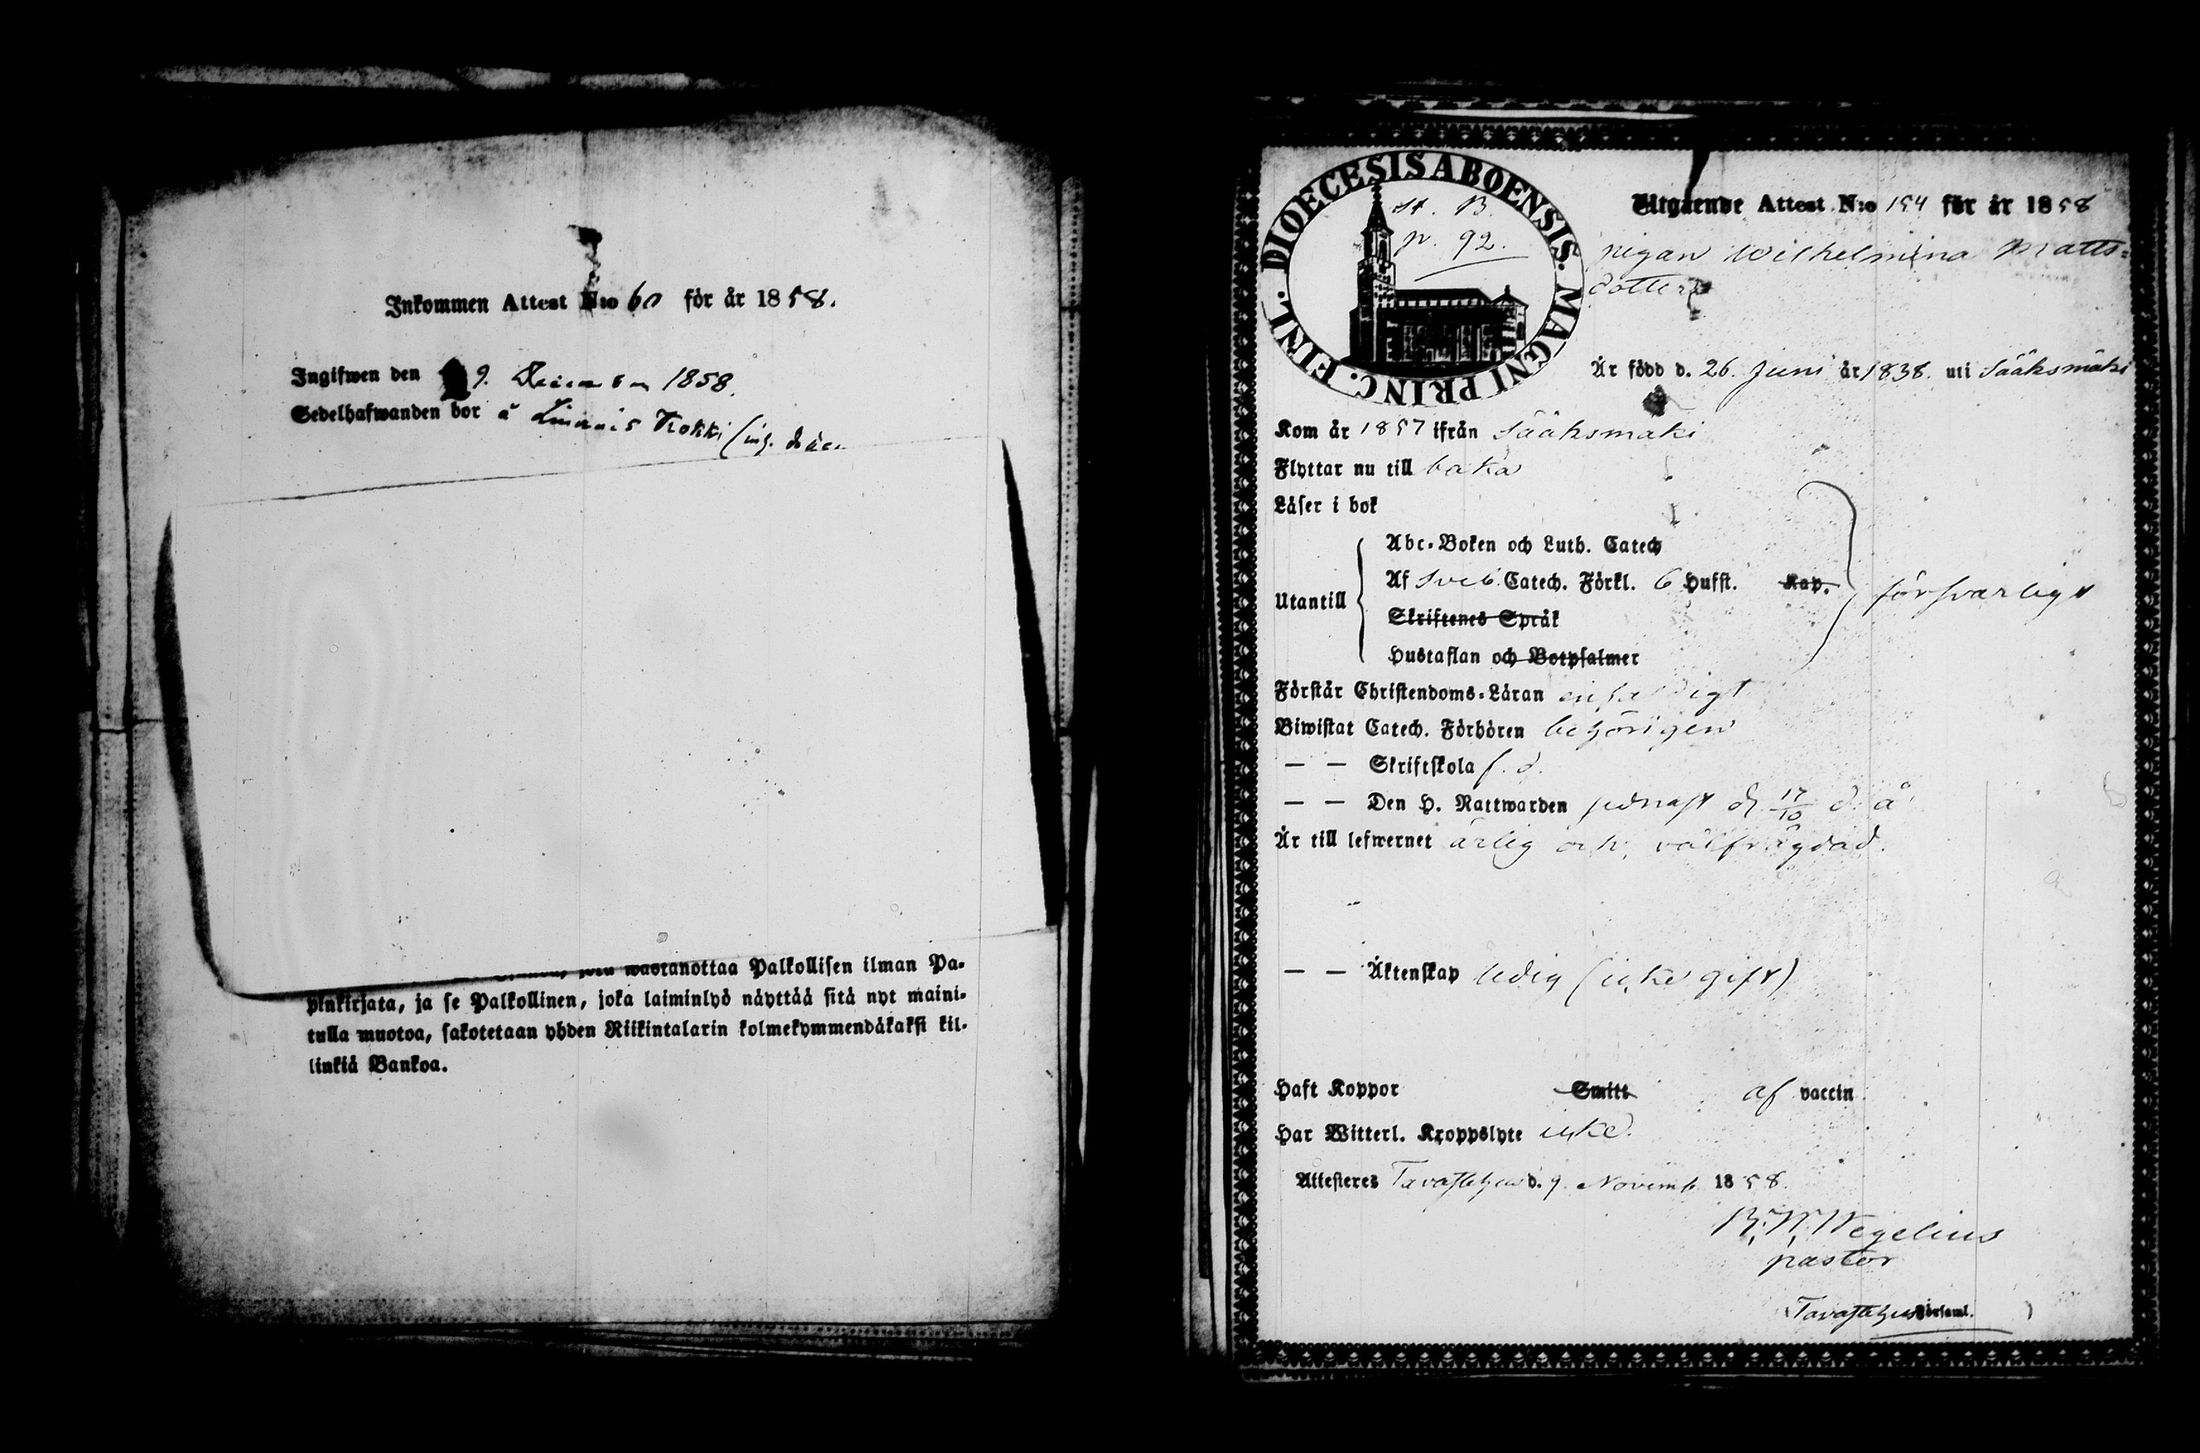 Inkommen Attest N:o 60 för år 1858.
Ingifwen den 9. December 1858.
Sedelhafwanden bor å Kokki
wastanottaa Palkollisen ilman Pa-
pinkirjata, ja se Palkollinen, joka laiminlyö näyttää sitä nyt maini-
tulla muotoa, sakotetaan yhden Riikintalarin kolmekymmendäkaksi kil-
linkiä Bankoa.
DIOECESIS ABOENSIS. MAGNI PRINC. FINL.
St. B.
p. 92.
Utgående Attest N:o 194 för år 1858
pigan Wilhelmina Matts-
dotter
Är född d. 26. Juni år 1838. uti Sääksmäki
Kom år 1857 ifrån Sääksmäki
Flyttar nu till baka
Läser i bok
Abc-Boken och Luth. Catech
Utantill
Af Sveb. Catech. Förkl. 6 Hufst. Kap.
försvarligt
Skriftenes Språk
Hustaflan och Botpsalmer
Förstår Christendoms-Läran enfaldigt
Biwistat Catech. Förhören behörigen
— — Skriftskola f. d.
— — Den H. Nattwarden sednast d. 17/10 d. å.
Är till lefwernet ärlig och välfrägdad.
— — Äktenskap ledig (icke gift)
Haft Koppor Smitt af vaccin
Har Witterl. Kroppslyte icke.
Attesteres Tavastehus d. 9. Novemb. 1858.
B. W. Wegelius
pastor
Tavastehus Församl.